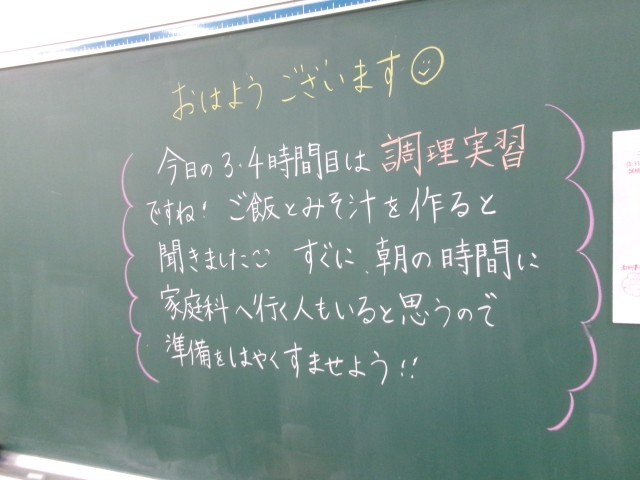 おはようございます
今日の3・4時間目は調理実習
ですね！ご飯とみそ汁を作ると
聞きました すぐに、朝の時間に
家庭科へ行く人もいると思うので
準備をはやくすませよう!!